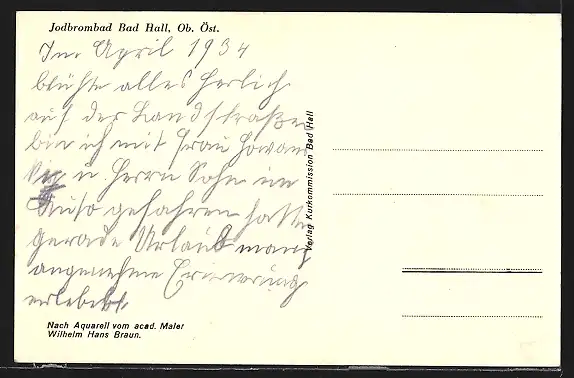 Jodbrombad Bad Hall, Ob. Öst.
Im April 1934
blühte alles herlich
auf der Landstraße
bin ich mit Frau
u. Herrn Sohn im
Auto gefahren hatte
gerade Urlaub manch
angenehme Erinnerung
erlebt.
Verlag Kurkommission Bad Hall
Nach Aquarell vom acad. Maler
Wilhelm Hans Braun.